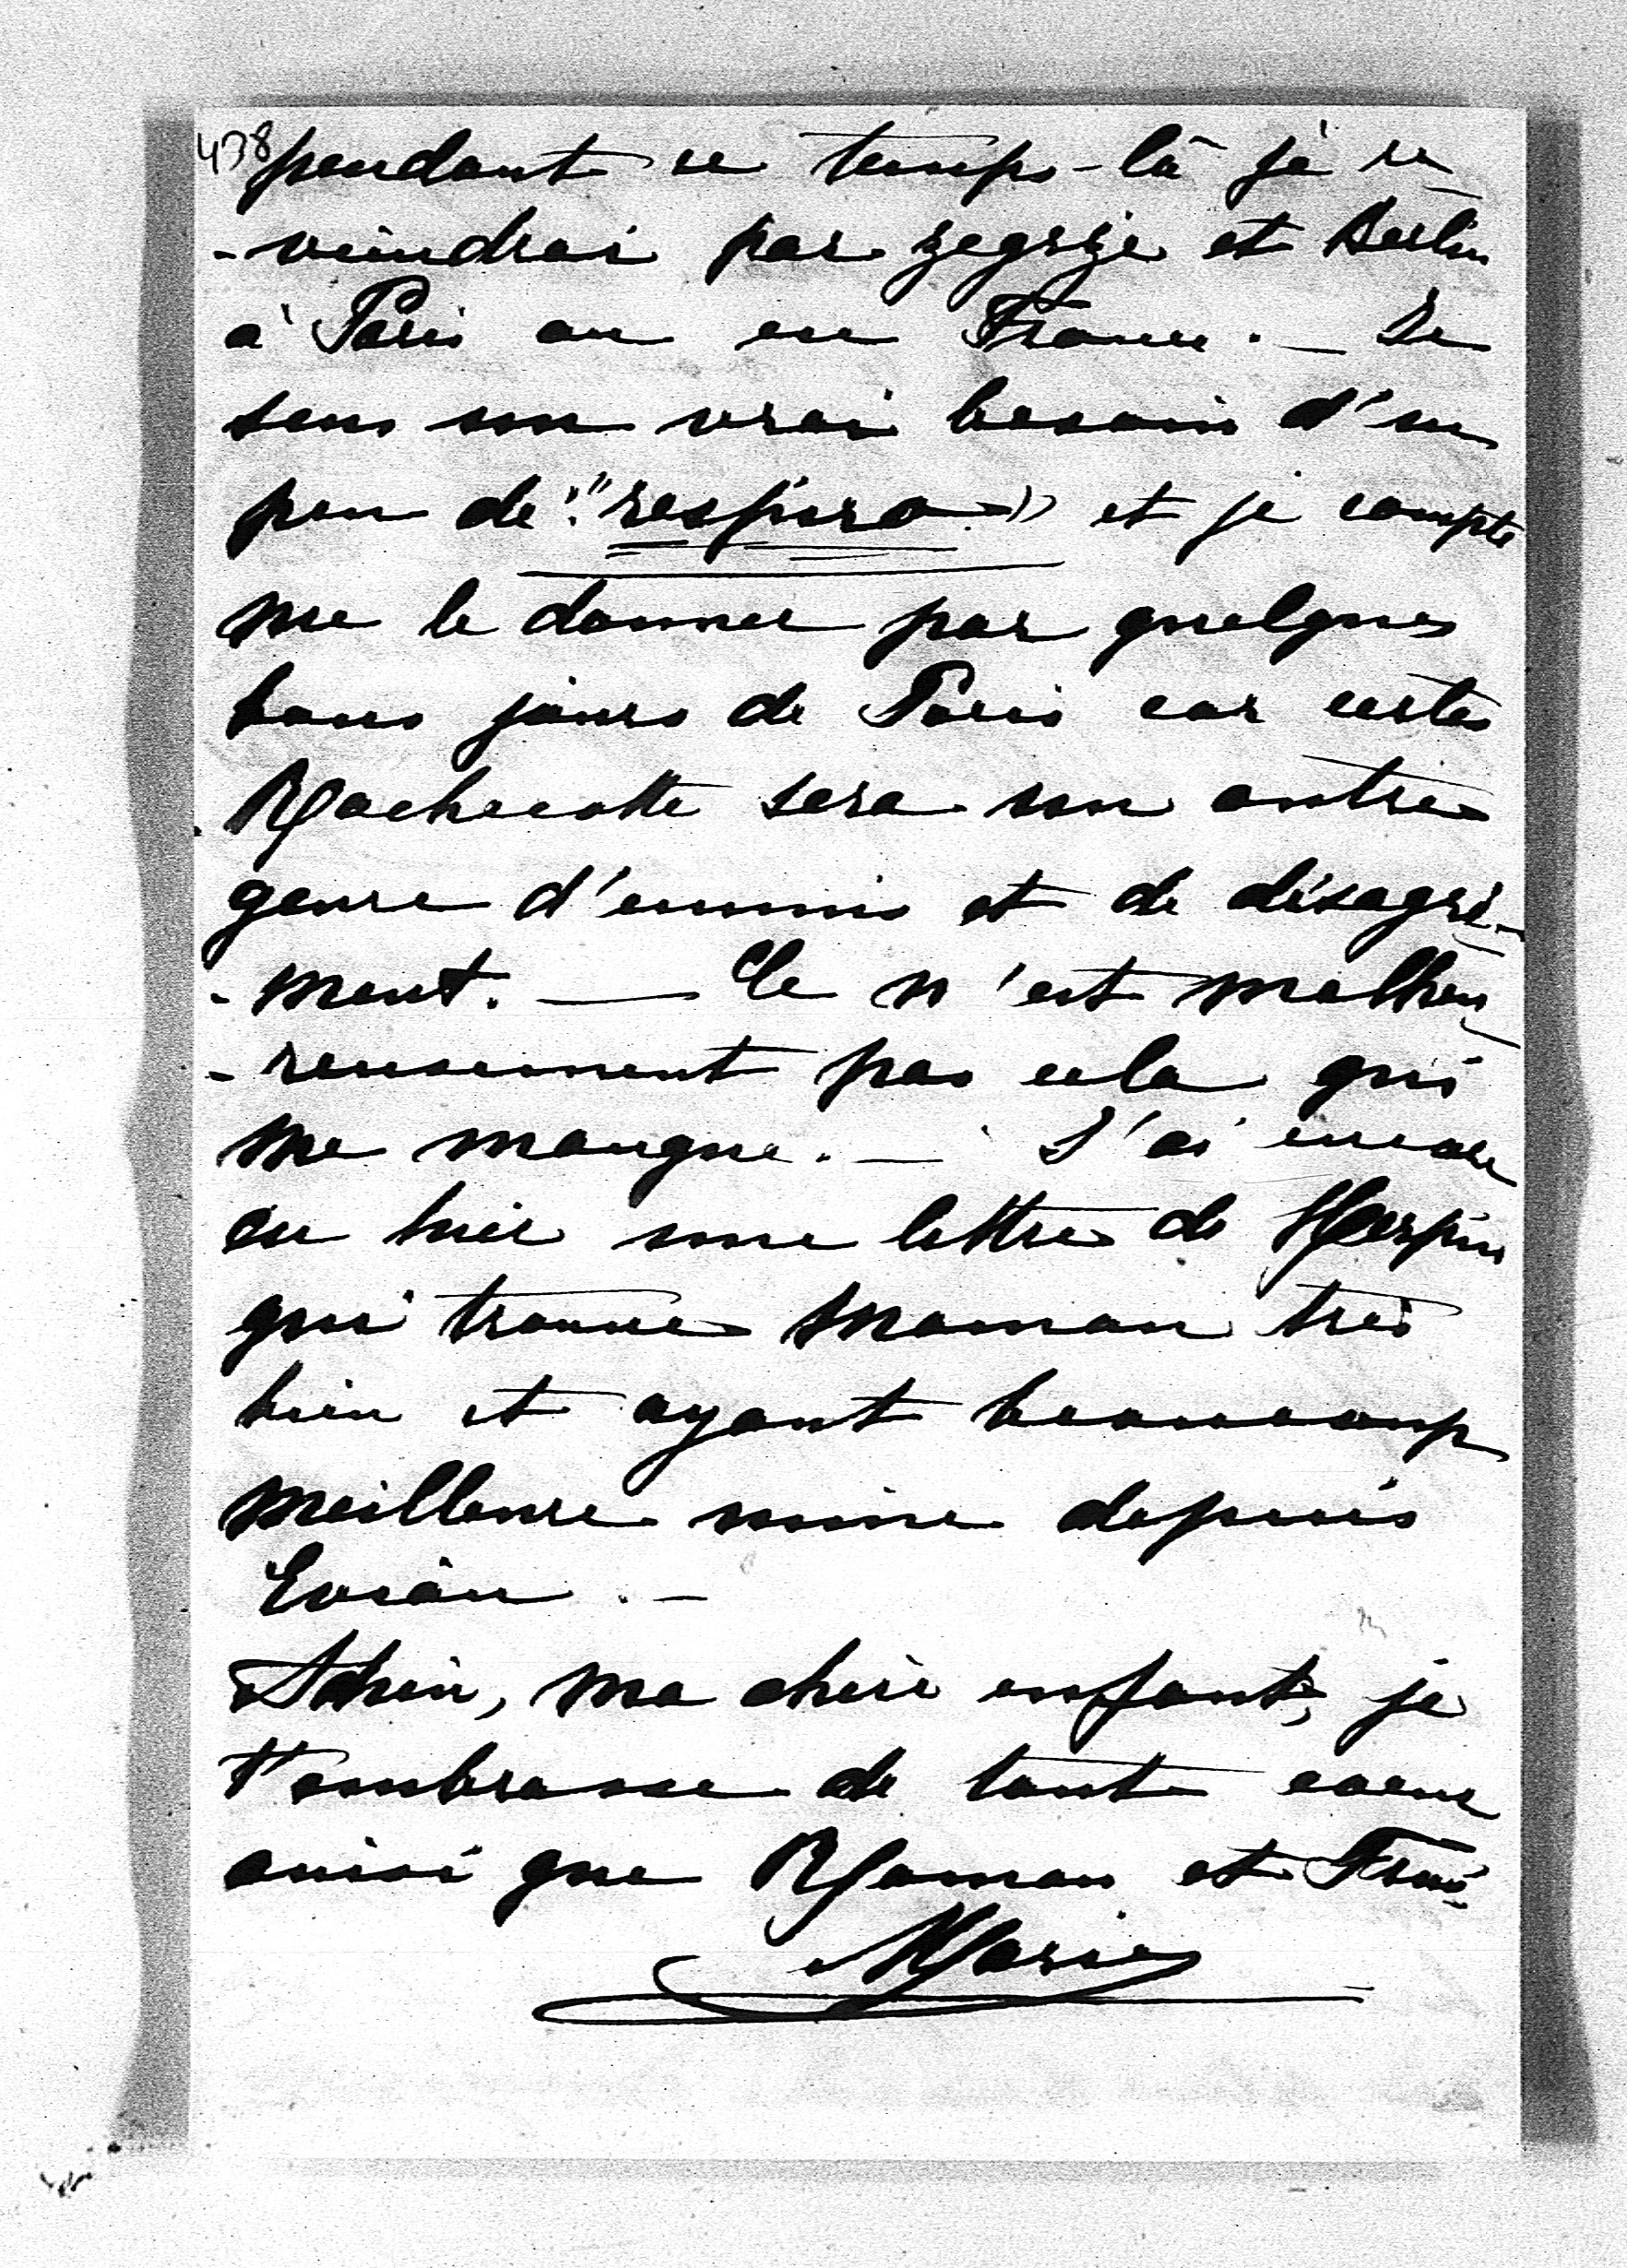 438
pendant ce temps-là je re
-viendrai par Zegrze et Berlin
à Paris ou en France. — Je
sens un vrai besoin d'un
peu de "respiro" et je compte
me le donner par quelques
bons jours de Paris car certes
Rochecotte sera un autre
genre d'ennuis et de désagré-
-ment. — Ce n'est malheu
-reusement pas cela qui
me manque. — J'ai encore
eu hier une lettre de Herpin
qui trouve Maman très
bien et ayant beaucoup
meilleure mine depuis
Evian. —
Adieu, ma chère enfant, je
t'embrasse de tout coeur
ainsi que Maman et
Marie